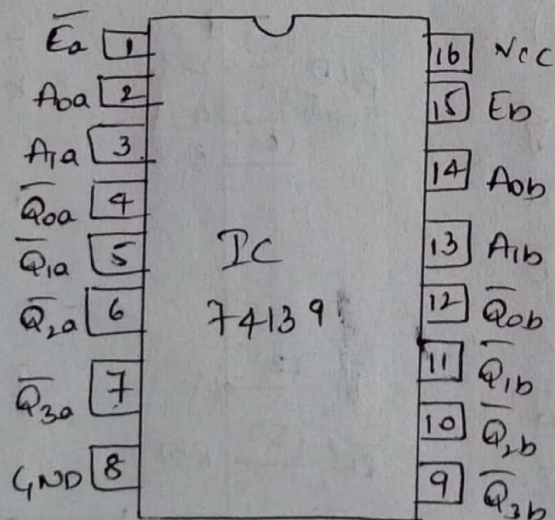 E̅a̅ 1
A0a 2
A1a 3
Q̅0a 4
Q̅1a 5
Q̅2a 6
Q̅3a 7
GND 8
IC
74139
16 Vcc
15 Eb
14 A0b
13 A1b
12 Q̅0b
11 Q̅1b
10 Q̅2b
9 Q̅3b